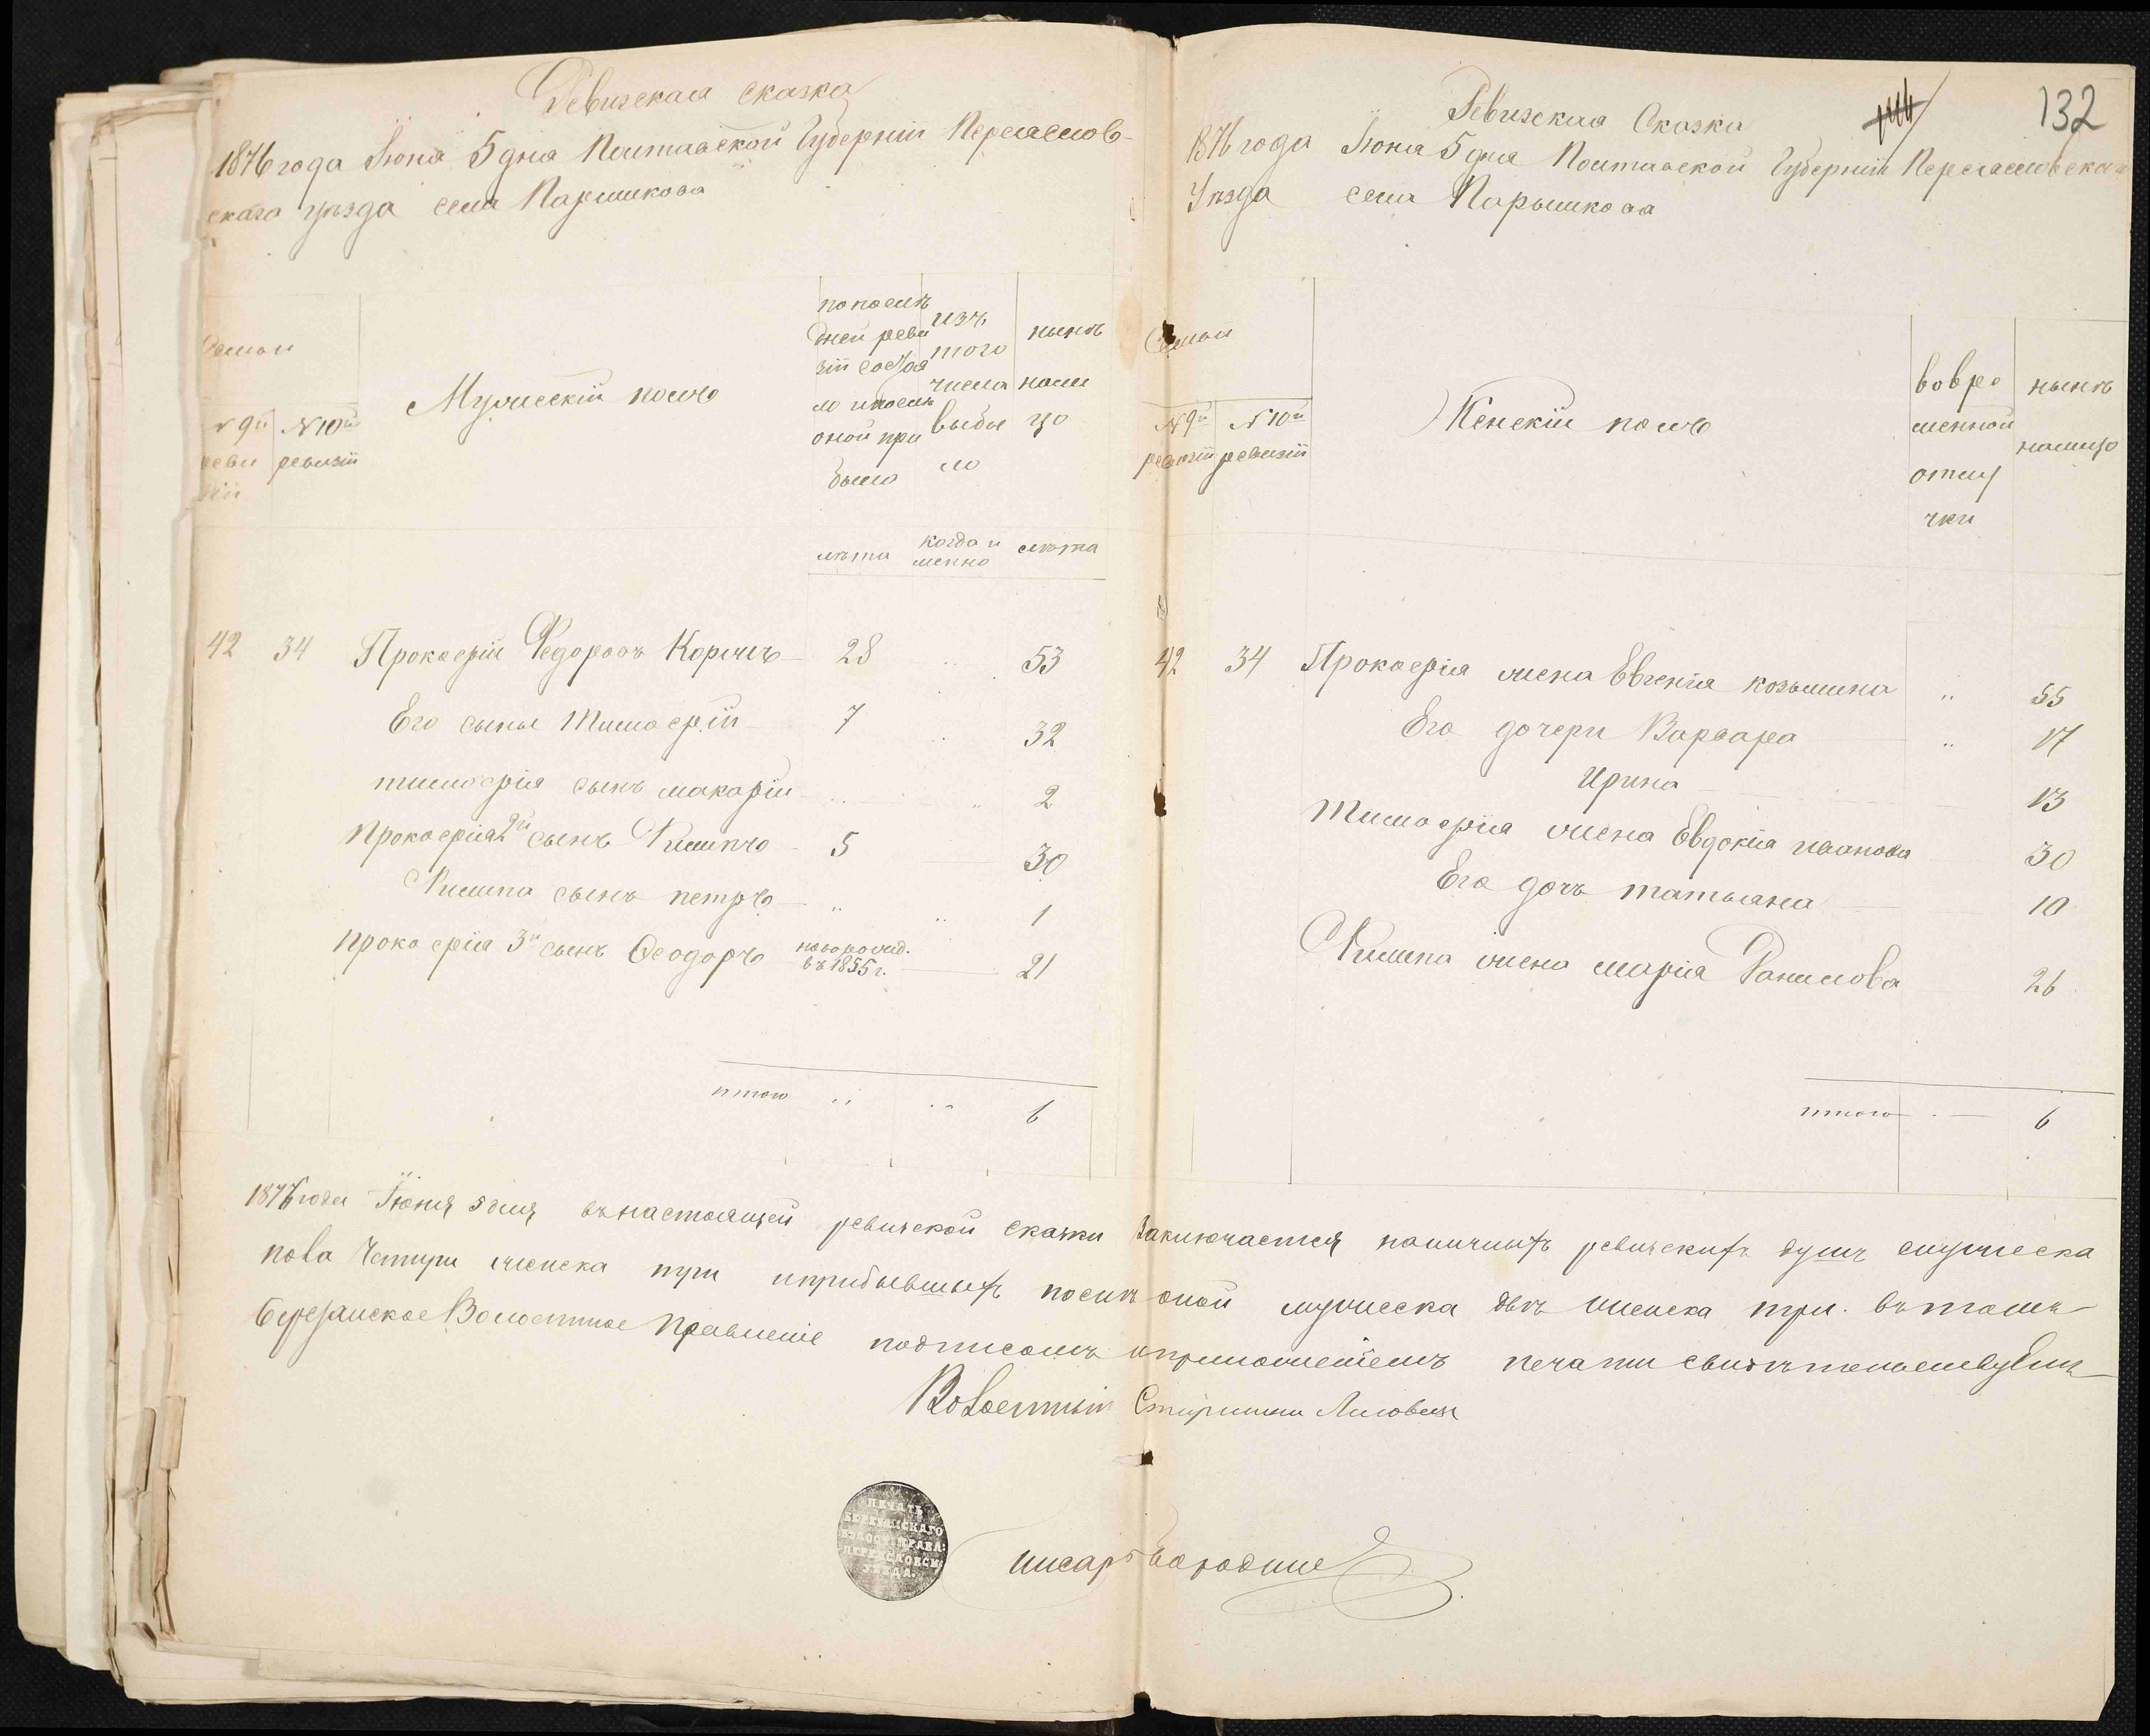 Ревизская сказка
1876 года Іюня 5 дня Полтавской Губерніи Переяслов-
скаго уѣзда села Паришкова
Семьи
№ 9й реви зіи
№ 10й ревизіи
Мужескій полъ
по послѣ дней реви зіи состоя ло и послѣ оной при было
изъ того числа выбы ло
нынѣ нали цо
лѣта
когда и менно
лѣта
42 34 Прокофій Федоровъ Коржъ 28 „ 53
Его сынъ Тимофій 7 „ 32
тимофія сынъ макарій „ „ 2
Прокофія 2й сынъ Филипъ 5 30
Филипа сынъ петръ „ „ 1
Прокофія 3й сынъ Феодоръ новорожд. въ 1855 г. 21
итого „ „ 6
Ревизская Сказка
132
1876 года Іюня 5 дня Полтавской Губерніи Переясловскаго
Уѣзда села Парышкова
Семьи
№ 9й ревизіи
№ 10й ревизіи
Женскій полъ
во вре менной отлу чки
нынѣ налицо
42 34 Прокофія жена Евгенія козьмина „ 55
Его дочери Варвара „ 17
Ирина 13
Тимофія жена Евдокія иванова 30
Его дочъ татьяна 10
Филипа жена марія Данилова 26
итого 6
1876 года Іюня 5 дня въ настоящей ревизской сказки заключается наличныхъ ревизскихъ душъ мужеска
пола Четыри женска три и прибывшыхъ послѣ оной мужеска двѣ женска три. въ томъ
Березанское Волостное Правленіе подписомъ и приложеніемъ печати свидѣтельствуетъ
Волостный Старшина
ПЕЧАТЬ БЕРЕЗАНСКАГО ВОЛОСТ: ПРАВЛ: ПЕРЕЯСЛОВСК: УѢЗДА.
писарь